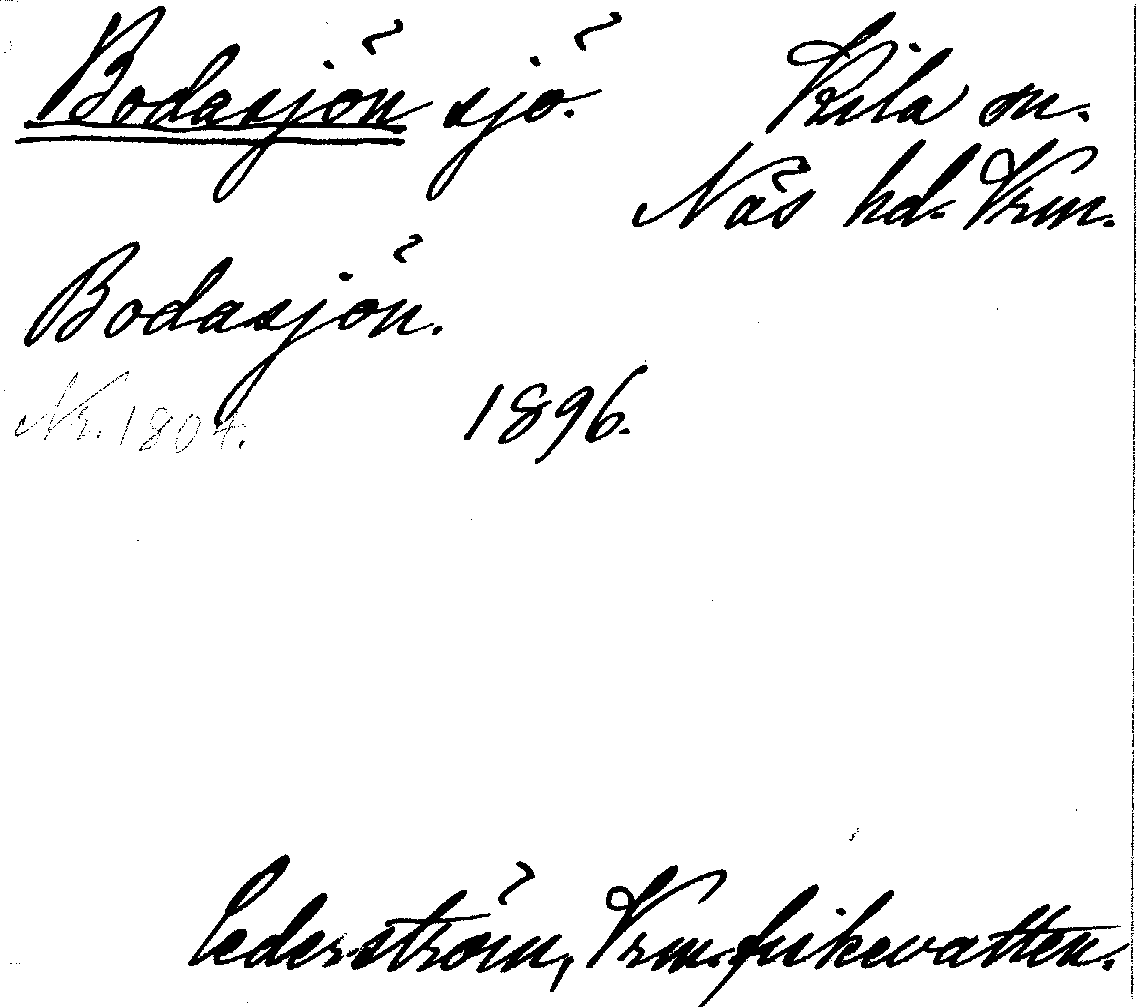 Bodasjön sjö. Kila sn.
Näs hd. Vrm.
Bodasjön.
Nr. 1804. 1896.
Cederström, Vrm. fiskevatten.